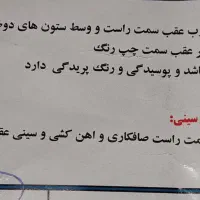 رب عقب سمت راست و وسط ستون های دو
ر عقب سمت چپ رنگ
اشد و پوسیدگی و رنگ پریدگی دارد
سینی:
مت راست صافکاری و اهن کشی و سینی عق